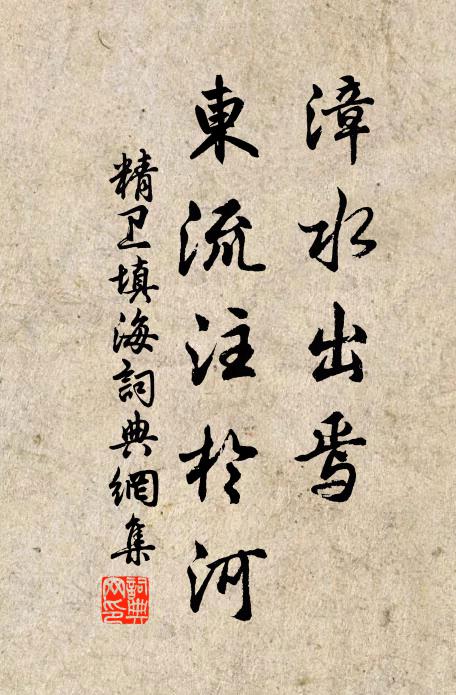 漳水出焉
東流注於河
精卫填海詞典網集
詞典网印